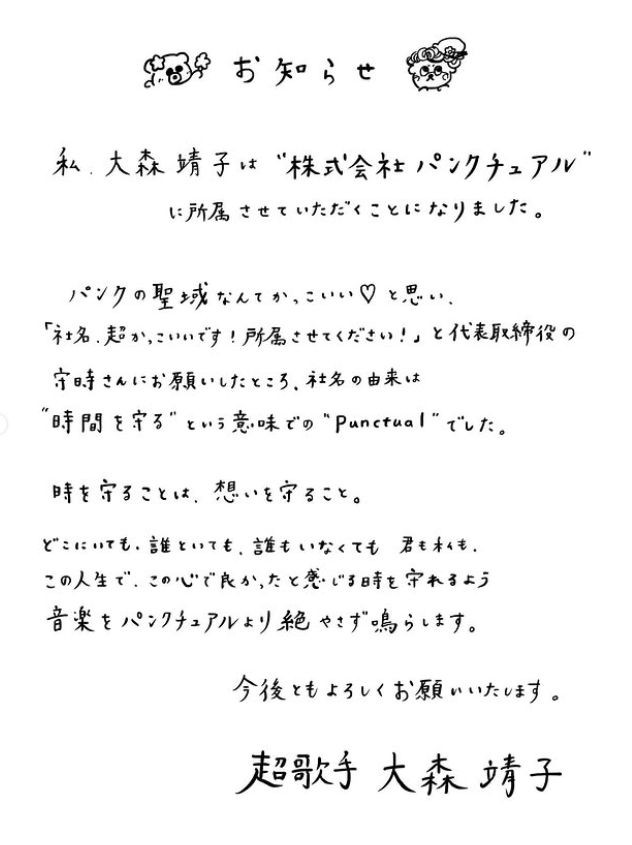 お知らせ
私、大森靖子は"株式会社パンクチュアル"
に所属させていただくことになりました。
パンクの聖域なんてかっこいい♡と思い、
「社名、超かっこいいです!所属させてください!」と代表取締役の
守時さんにお願いしたところ、社名の由来は
"時間を守る"という意味での"Punctual"でした。
時を守ることは、想いを守ること。
どこにいても、誰といても、誰もいなくても 君も私も、
この人生で、この心で良かったと感じる時を守れるよう
音楽をパンクチュアルより絶やさず鳴らします。
今後ともよろしくお願いいたします。
超歌手 大森靖子